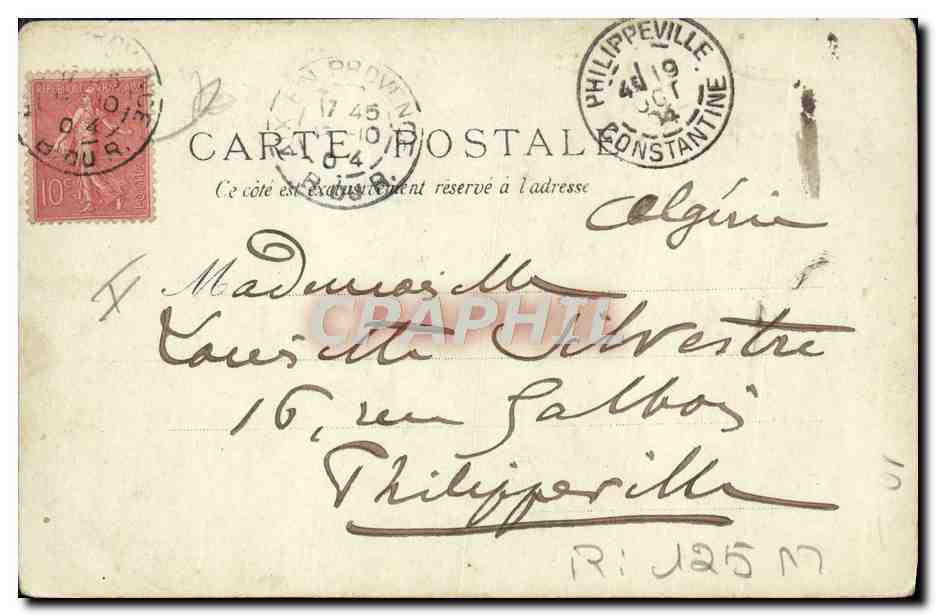 PHILIPPEVILLE
CONSTANTINE
19
OCT
04
AIX EN PROVENCE
17 45
10
04
B. DU R.
10
04
B. DU R.
REPUBLIQUE FRANÇAISE
10c
POSTES
CARTE POSTALE
Ce côté est exclusivement réservé à l'adresse
Algérie
Mademoiselle
Lousette Silvestre
16, rue Galbois
Philippeville
CPAPHIL
125 M